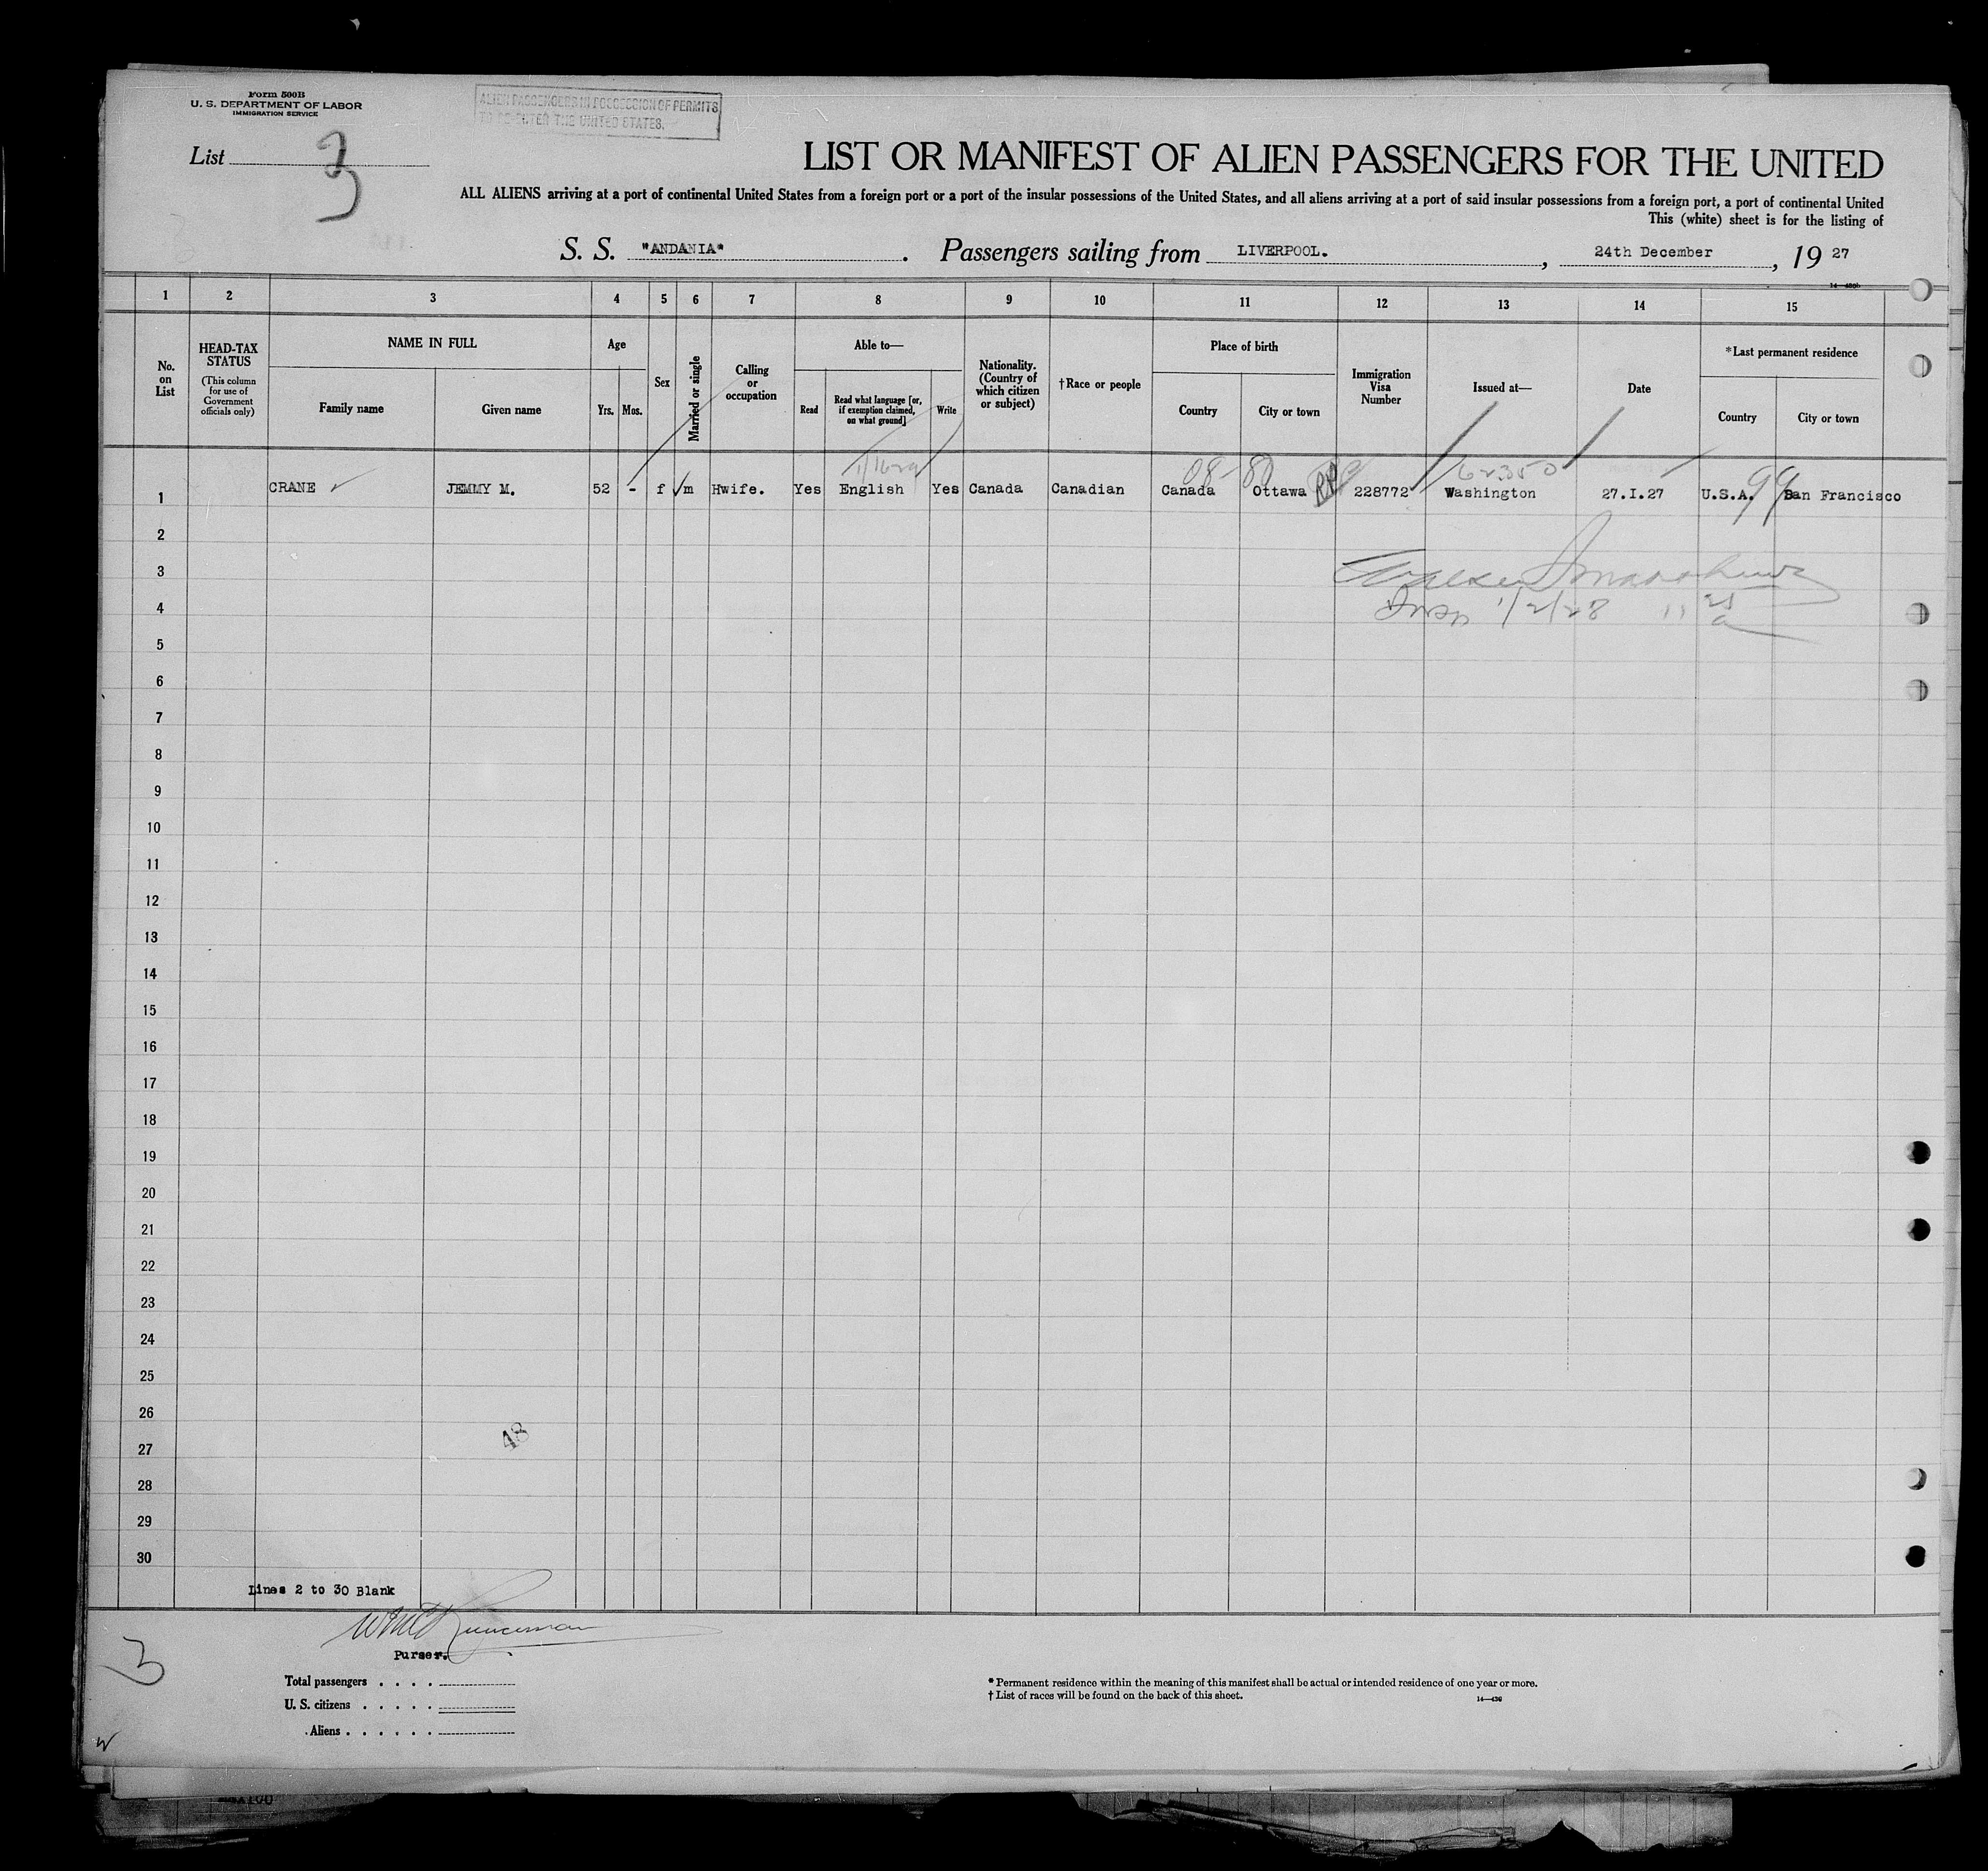 Form 500B
U. S. DEPARTMENT OF LABOR
IMMIGRATION SERVICE
ALIEN PASSENGERS IN POSSESSION OF PERMITS
TO RE-ENTER THE UNITED STATES.
List 3
LIST OR MANIFEST OF ALIEN PASSENGERS FOR THE UNITED
ALL ALIENS arriving at a port of continental United States from a foreign port or a port of the insular possessions of the United States, and all aliens arriving at a port of said insular possessions from a foreign port, a port of continental United
This (white) sheet is for the listing of
S. S. "ANDANIA" . Passengers sailing from LIVERPOOL. , 24th December , 19 27
1 2 3 4 5 6 7 8 9 10 11 12 13 14 15
No. on List
HEAD-TAX STATUS
(This column for use of Government officials only)
NAME IN FULL
Family name
Given name
Age
Yrs.
Mos.
Sex
Married or single
Calling or occupation
Able to—
Read
Read what language [or, if exemption claimed, on what ground]
Write
Nationality. (Country of which citizen or subject)
†Race or people
Place of birth
Country
City or town
Immigration Visa Number
Issued at—
Date
*Last permanent residence
Country
City or town
62350
99
1 CRANE JEMMY M. 52 - f m Hwife. Yes English Yes Canada Canadian Canada Ottawa 228772 Washington 27.I.27 U.S.A. San Francisco
2
3
1/2/28
4
5
6
7
8
9
10
11
12
13
14
15
16
17
18
19
20
21
22
23
24
25
26
48
27
28
29
30
Lines 2 to 30 Blank
Purser.
3
Total passengers . . . .
U. S. citizens . . . . .
Aliens . . . . . .
* Permanent residence within the meaning of this manifest shall be actual or intended residence of one year or more.
† List of races will be found on the back of this sheet.
14—436